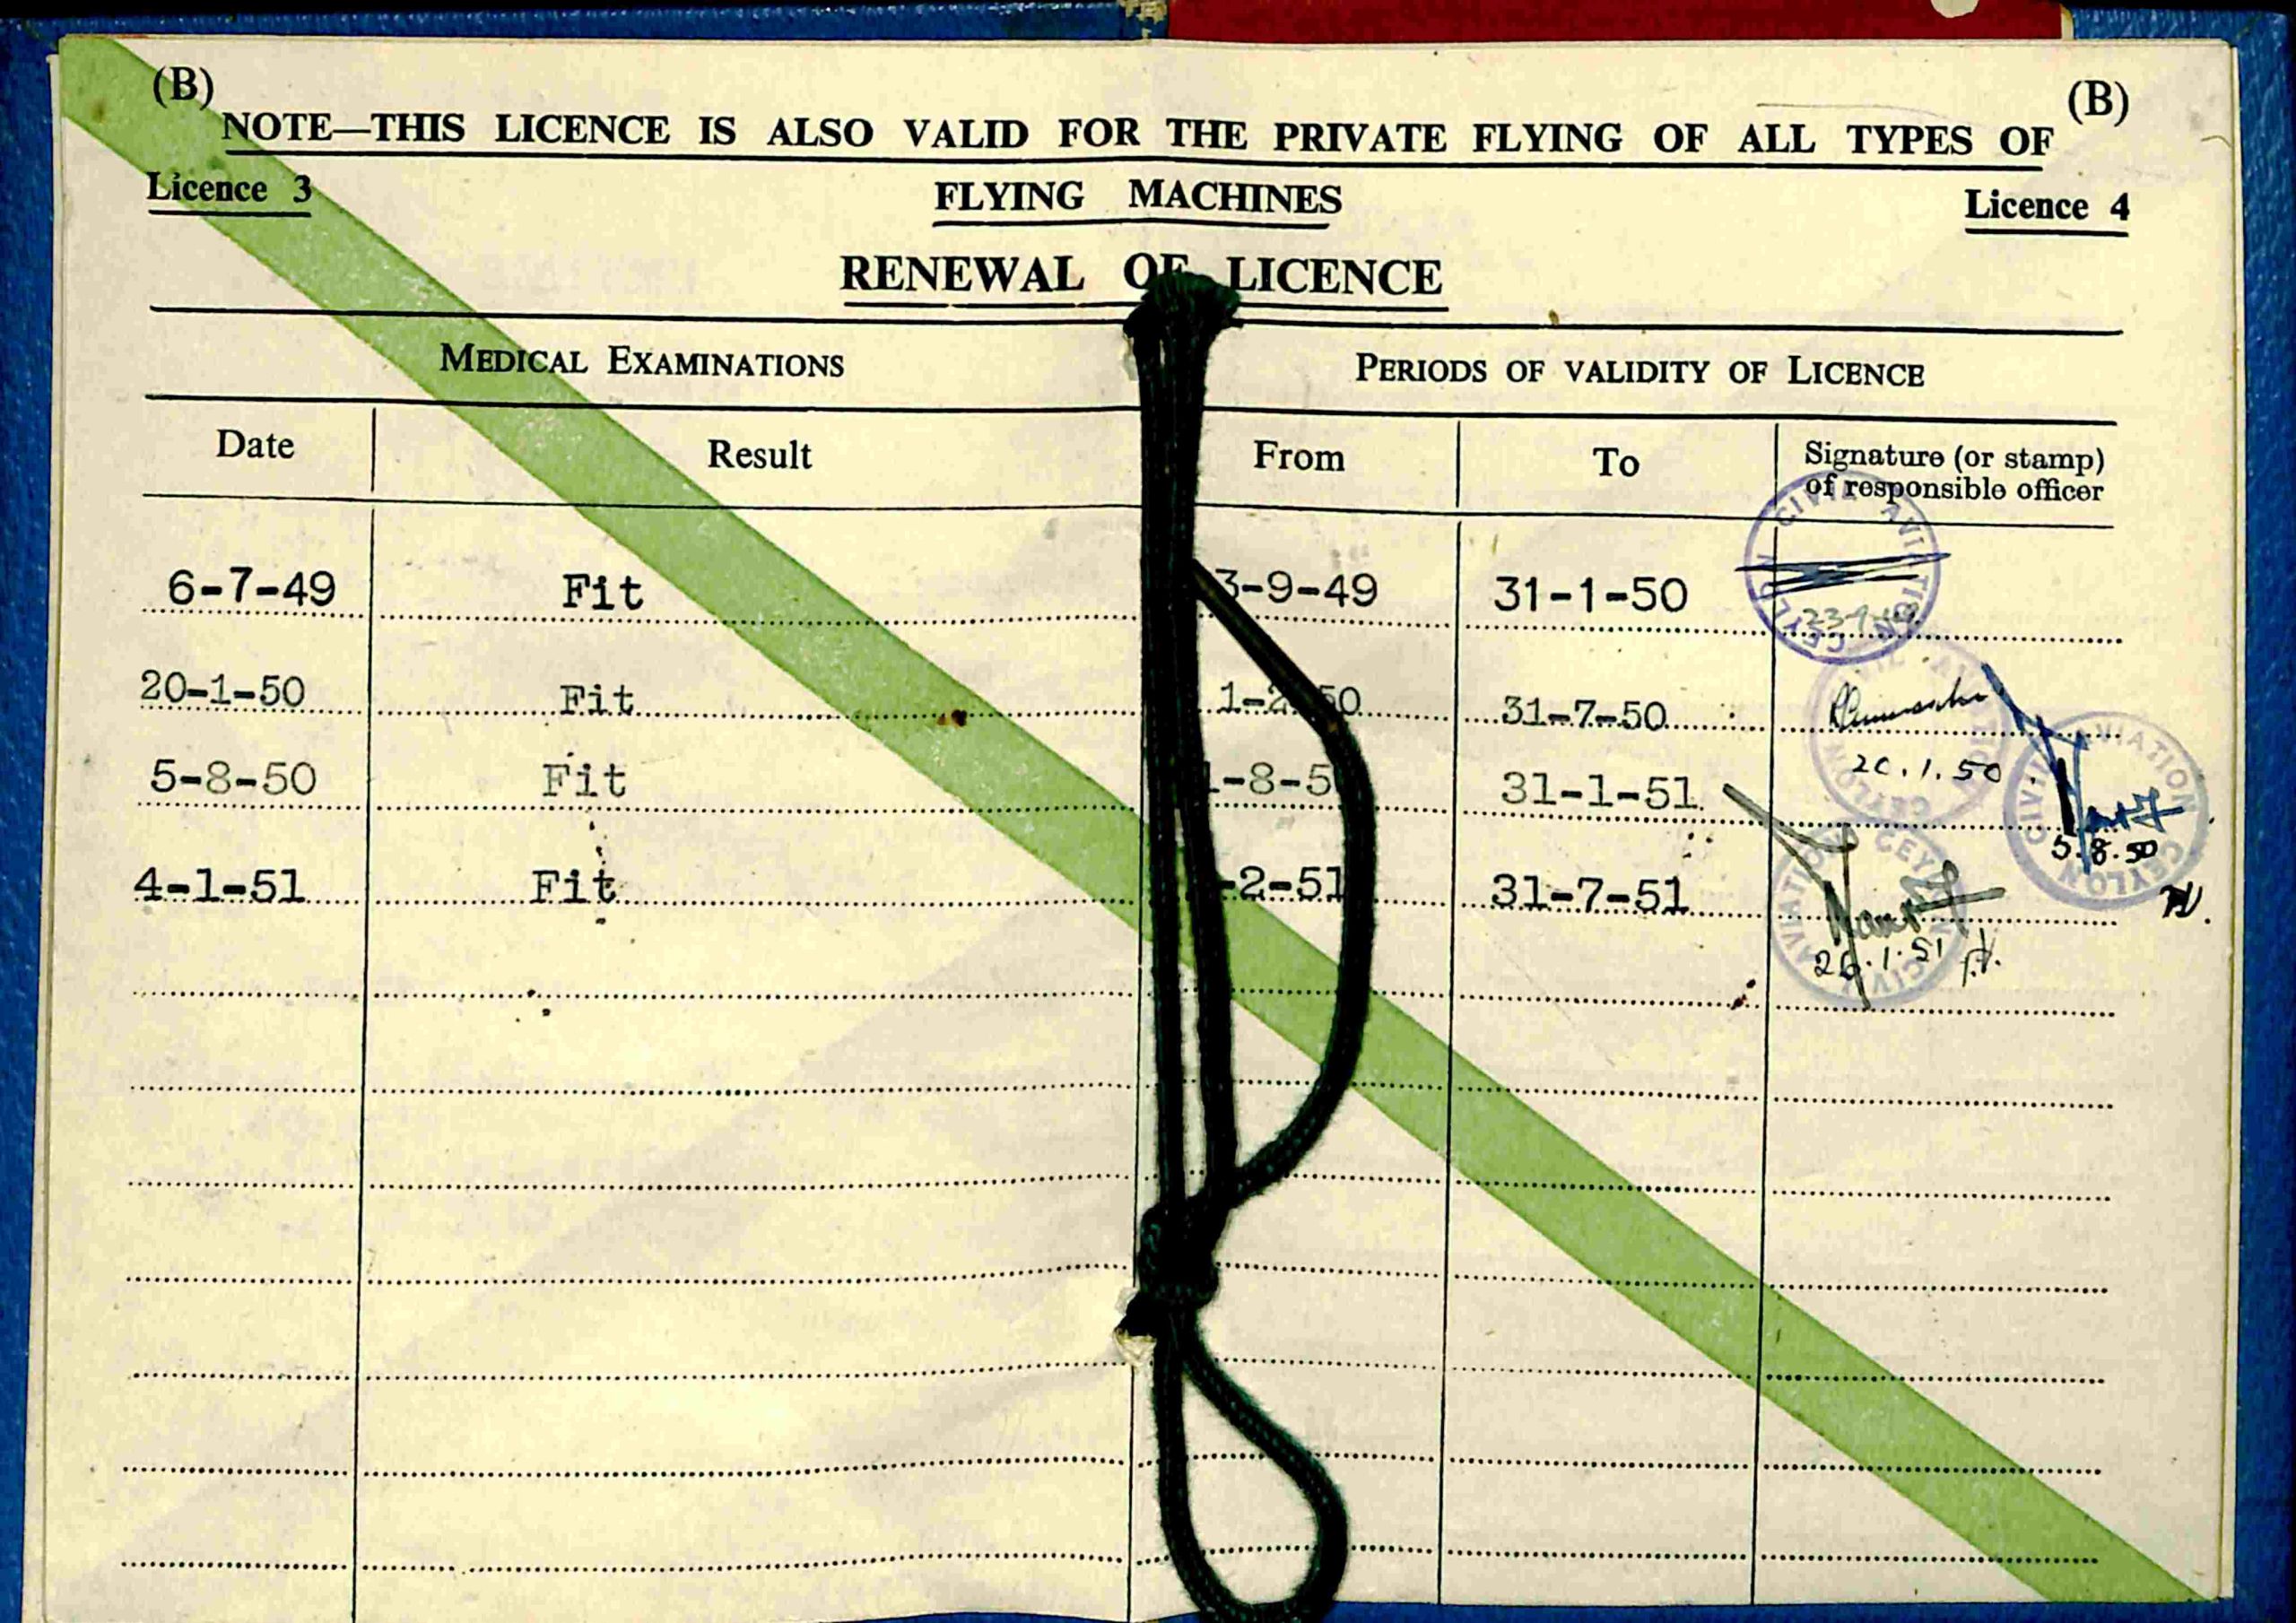 (B) (B)
NOTE—THIS LICENCE IS ALSO VALID FOR THE PRIVATE FLYING OF ALL TYPES OF
Licence 3 FLYING MACHINES Licence 4
RENEWAL OF LICENCE
MEDICAL EXAMINATIONS PERIODS OF VALIDITY OF LICENCE
Date Result From To Signature (or stamp)
of responsible officer
6-7-49 Fit 3-9-49 31-1-50
CIVIL AVIATION CEYLON
20-1-50 Fit 31-7-50
20.1.50
5-8-50 Fit 31-1-51
CIVIL AVIATION CEYLON
5.8.50
4-1-51 Fit -2-51 31-7-51
CIVIL AVIATION CEYLON
26.1.51